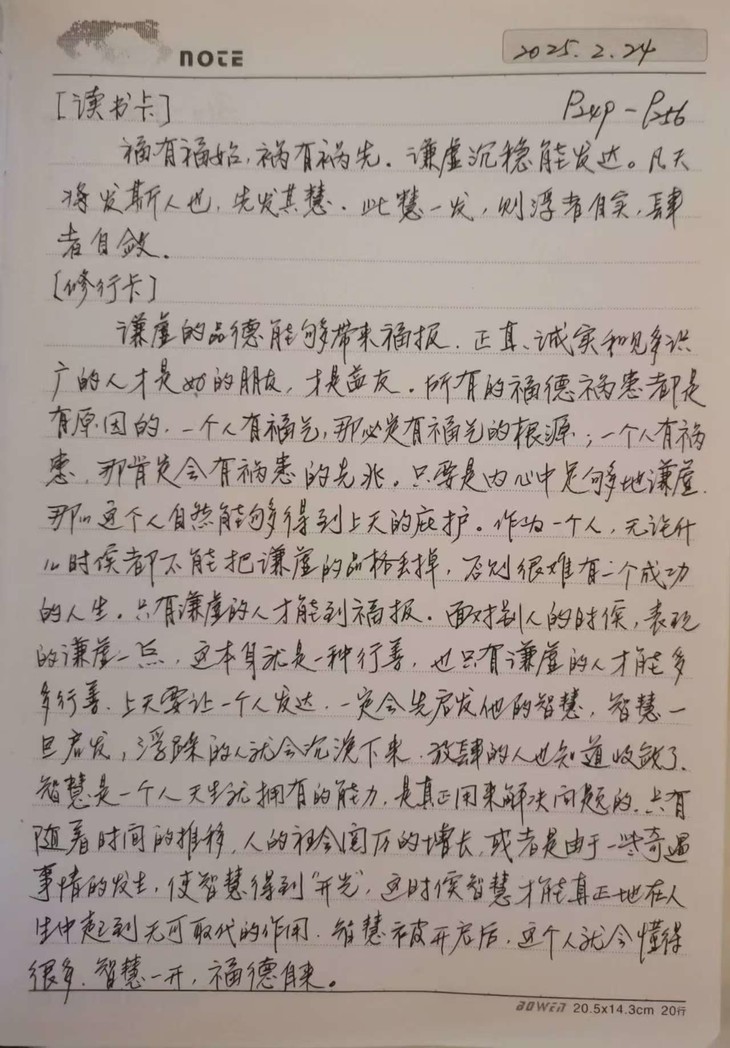 NOTE
2025.2.24
[读书卡] P249-P256
福有福始，祸有祸先．谦虚沉稳能发达。凡天
将发斯人也，先发其慧．此慧一发，则浮者自实，肆
者自敛．
[修行卡]
谦虚的品德能够带来福报．正直、诚实和见多识
广的人才是好的朋友，才是益友．所有的福德祸患都是
有原因的．一个人有福气，那必定有福气的根源；一个人有祸
患，那肯定会有祸患的先兆。只要是内心中足够地谦虚，
那么这个人自然能够得到上天的庇护。作为一个人，无论什
么时侯都不能把谦虚的品格丢掉，否则很难有一个成功
的人生。只有谦虚的人才能到福报．面对别人的时侯，表现
的谦虚一点，这本身就是一种行善，也只有谦虚的人才能多
多行善．上天要让一个人发达．一定会先启发他的智慧，智慧一
旦启发，浮躁的人就会沉淀下来．放肆的人也知道收敛了．
智慧是一个人天生就拥有的能力，是真正用来解决问题的．只有
随着时间的推移，人的社会阅历的增长，或者是由于一些奇遇
事情的发生，使智慧得到“开光”，这时侯智慧才能真正地在人
生中起到无可取代的作用．智慧被开启后，这个人就会懂得
很多．智慧一开，福德自来。
BOWEN 20.5x14.3cm 20行